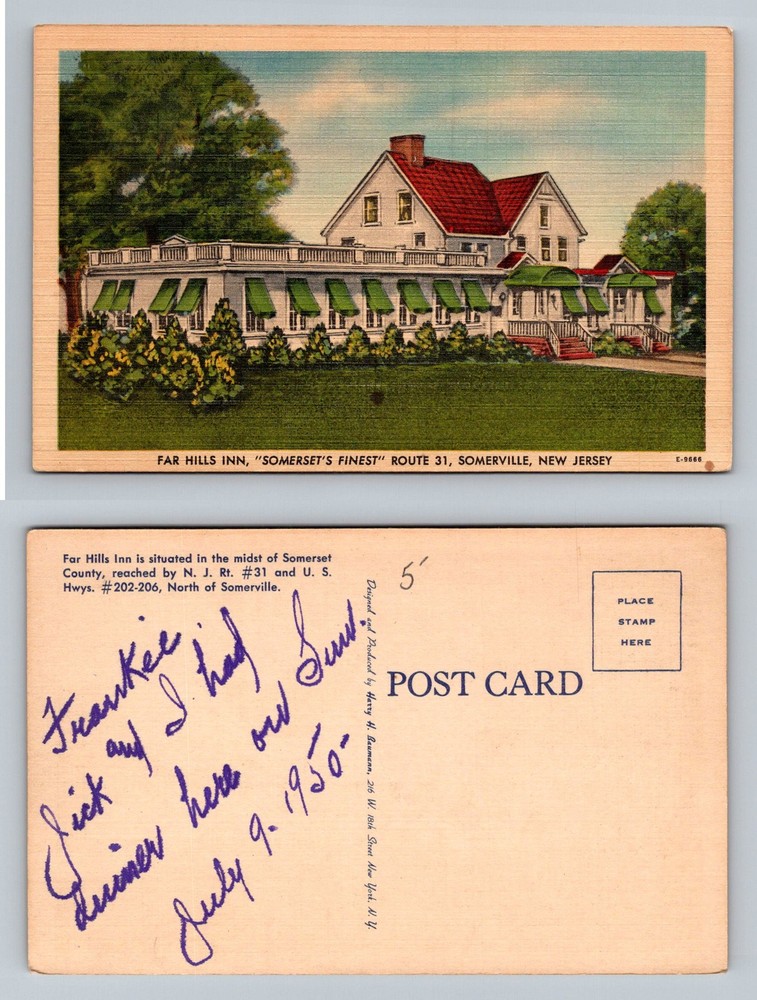 FAR HILLS INN, "SOMERSET'S FINEST" ROUTE 31, SOMERVILLE, NEW JERSEY
E-9666
Far Hills Inn is situated in the midst of Somerset
County, reached by N. J. Rt. #31 and U. S.
Hwys. #202-206, North of Somerville.
Frankie
Dick and I had
dinner here on Sun.
July 9-1950-
Designed and Produced by Harry H. Baumann, 216 W. 18th Street New York, N. Y.
5
POST CARD
PLACE
STAMP
HERE